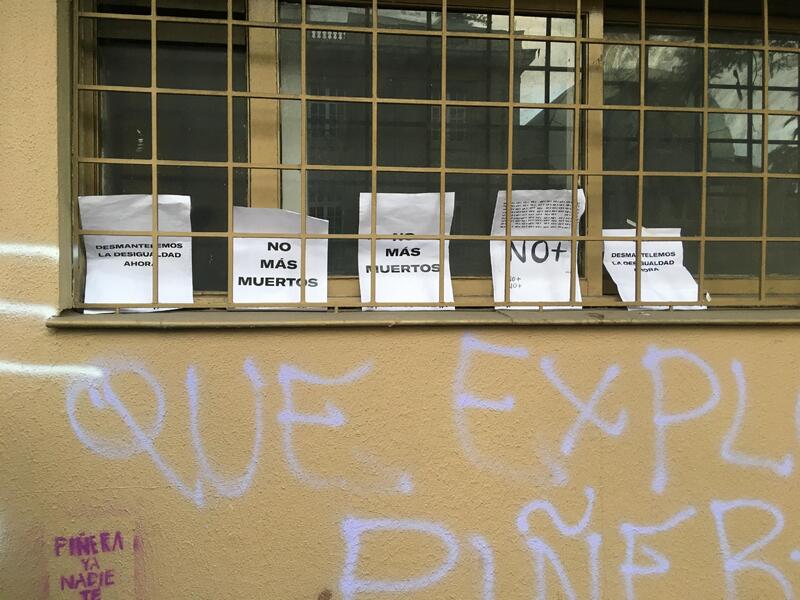 DESMANTELEMOS
LA DESIGUALDAD
AHORA
NO
MÁS
MUERTOS
NO
MÁS
MUERTOS
NO+
NO+
NO+
DESMANTELEMOS
LA DESIGUALDAD
AHORA
QUE EXPL
PIÑER
PIÑERA
YA
NADIE
TE